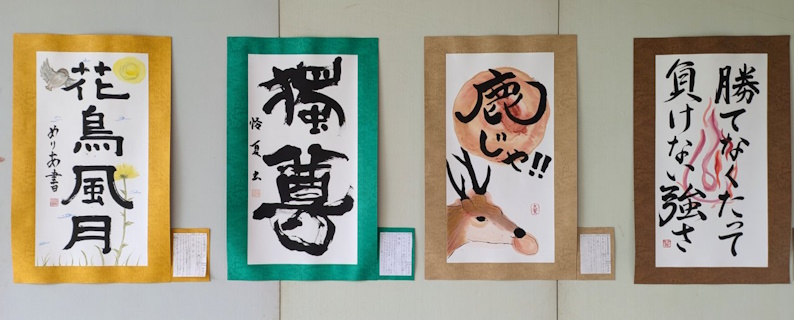 花鳥風月
めりあ書
獨尊
鹿
じゃ!!
勝てなくたって
負けない強さ